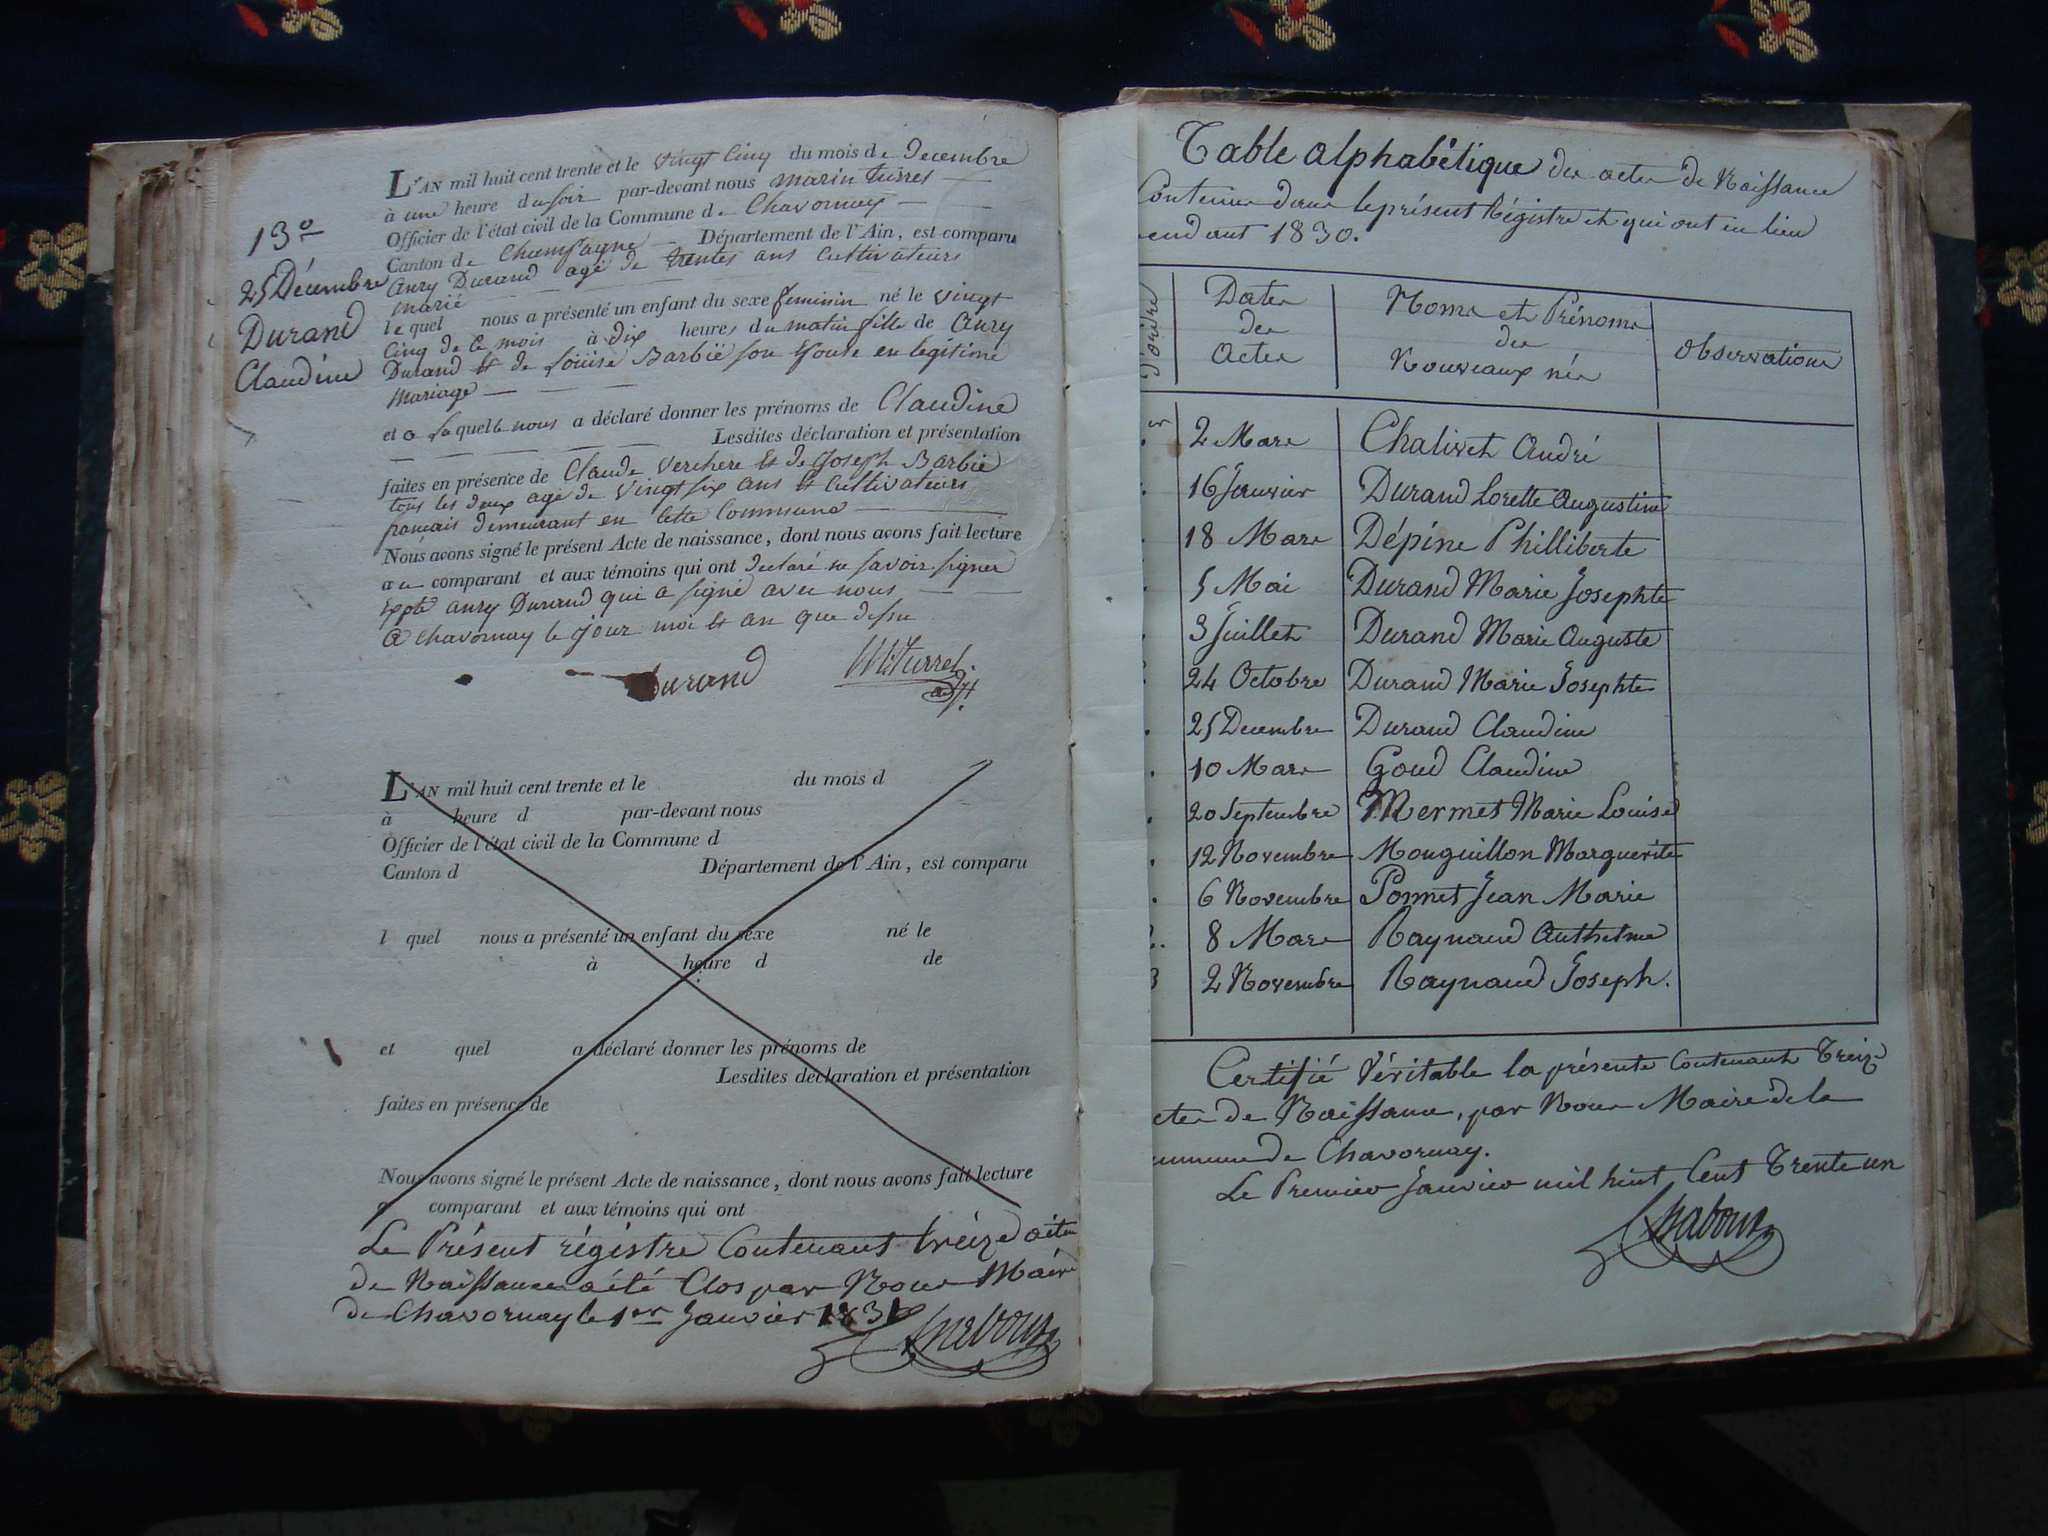 13º
25 Décembre
Durand
Claudine
L'AN mil huit cent trente et le vingt Cinq du mois de Decembre
à une heure du soir par-devant nous marin turrel
Officier de l'état civil de la Commune de Chavornay
Canton de Champagne Département de l'Ain, est comparu
anry Durand agé de trentes ans Cultivateurs
marié
lequel nous a présenté un enfant du sexe feminin né le vingt
Cinq de ce mois à dix heures du matin fille de anry
Durand et de Loüise Barbië son Epouse en legitime
mariage
et a laquelle nous a déclaré donner les prénoms de Claudine
Lesdites déclaration et présentation
faites en présence de Claude Verchere et de Joseph Barbië
tous les deux agé de vingt six ans et Cultivateurs
demeurant en Cette Commune
Nous avons signé le présent Acte de naissance, dont nous avons fait lecture
au comparant et aux témoins qui ont declaré ne savoir signer
expté anry Durand qui a signé avec nous
a chavornay le jour moi et an que dessu
Durand Mi Turrel
adj.
L'AN mil huit cent trente et le du mois d
à heure d par-devant nous
Officier de l'état civil de la Commune d
Canton d Département de l'Ain, est comparu
l quel nous a présenté un enfant du sexe né le
à heure d de
et quel a déclaré donner les prénoms de
Lesdites déclaration et présentation
faites en présence de
Nous avons signé le présent Acte de naissance, dont nous avons fait lecture
a comparant et aux témoins qui ont
Le Présent régistre Contenant treize actes
de Naissance a été Clos par Nous Maire
de Chavornay le 1er Janvier 1831
Chabour
Table alphabétique des actes de Naissance
Contenues dans le présent Régistre et qui ont eu lieu
endant 1830.
d'ordre
Dates des Actes
Noms et Prénoms des Nouveaux nés
Observations
2 Mars Chalivet André
16 Janvier Durand Lorette Augustine
18 Mars Dépine Philliberte
5 Mai Durand Marie Josephte
3 Juillet Durand Marie Auguste
24 Octobre Durand Marie Josephte
25 Decembre Durand Claudine
10 Mars Goud Claudine
20 Septembre Mermet Marie Louise
12 Novembre Monguillon Marguerite
6 Novembre Ponnet Jean Marie
8 Mars Raynaud Anthelme
3 2 Novembre Raynaud Joseph.
Certifié Véritable la présente Contenant Treize
ctes de Naissance, par Nous Maire de la
ommune de Chavornay.
Le Premier Janvier mil huit Cent Trente un
Chabour